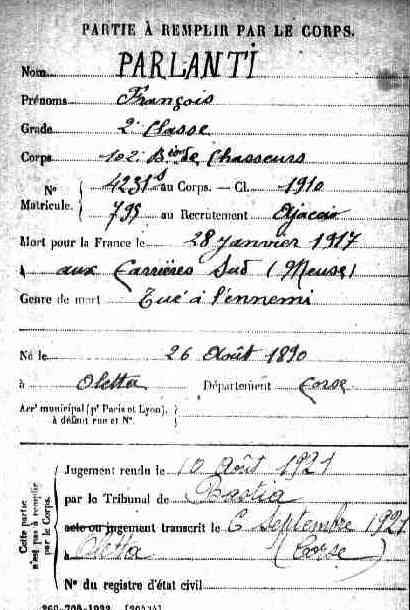 PARTIE À REMPLIR PAR LE CORPS.
Nom PARLANTI
Prénoms François
Grade 2e Classe
Corps 102e Bton de Chasseurs
No 4231S au Corps. — Cl. 1910
Matricule. 795 au Recrutement Ajaccio
Mort pour la France le 28 Janvier 1917
à aux Carrières Sud (Meuse)
Genre de mort Tué à l'ennemi
Né le 26 Août 1890
à Oletta Département Corse
Arrt municipal (pr Paris et Lyon),
à défaut rue et No.
Cette partie
n'est pas à remplir
par le Corps.
Jugement rendu le 10 Août 1921
par le Tribunal de Bastia
acte ou jugement transcrit le 6 Septembre 1921
à Oletta (Corse)
No du registre d'état civil